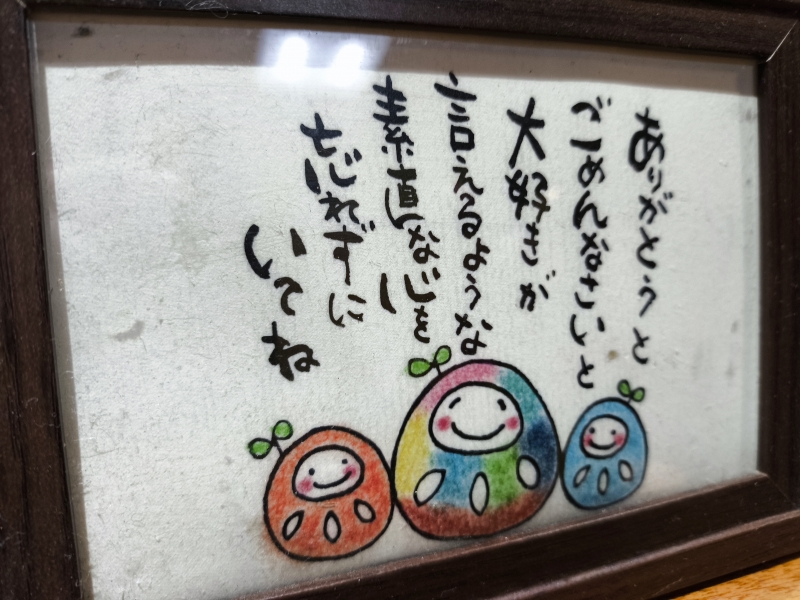 ありがとうと
ごめんなさいと
大好きが
言えるような
素直な心を
忘れずに
いてね